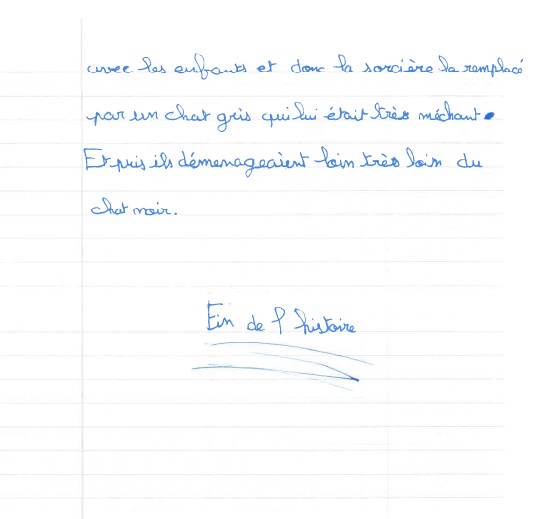 avec les enfants et donc la sorcière la remplacé
par un chat gris qui lui était très méchant.
Et puis ils démenageaient loin très loin du
chat noir.
Fin de l'histoire